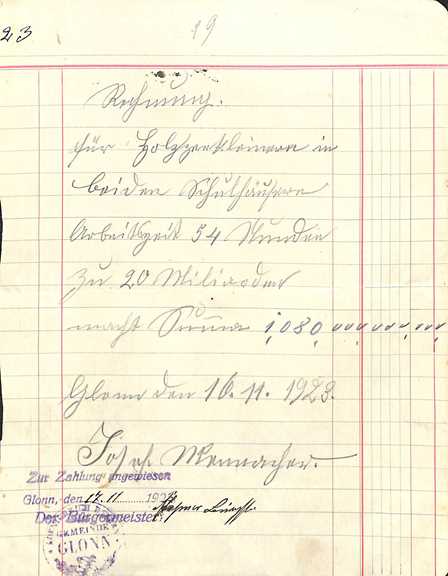 23 19
Rechnung.
für Holzzerkleinern in
beiden Schulhäusern
Arbeitszeit 54 Stunden
zu 20 Miliarden
macht Suma 1,080,000,000,000
Glonn den 16. 11. 1923.
Josef
Zur Zahlung angewiesen
Glonn, den 17.11 192
Der Bürgermeister:
GEMEINDE
GLONN